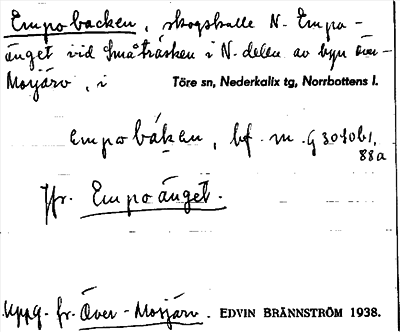 Empobacken, skogskulle N. Empo-
änget vid Småträsken i N. delen av byn Över-
Morjärv, i Töre sn, Nederkalix tg, Norrbottens l.
empobáken, bf. m. G 3070b1,
88a
Jfr. Empoänget.
Uppg. fr. Över-Morjärv. EDVIN BRÄNNSTRÖM 1938.